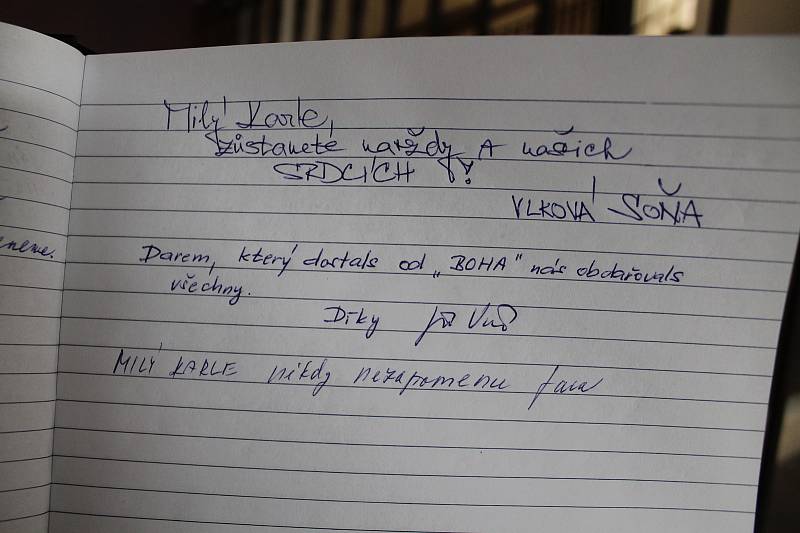 eneme.
Milý Karle,
zůstanete navždy A našich
SRDCÍCH
VLKOVÁ SOŇA
Darem, který dostals od „BOHA" nás obdařovals
všechny.
Díky
MILÝ KARLE nikdy nezapomenu